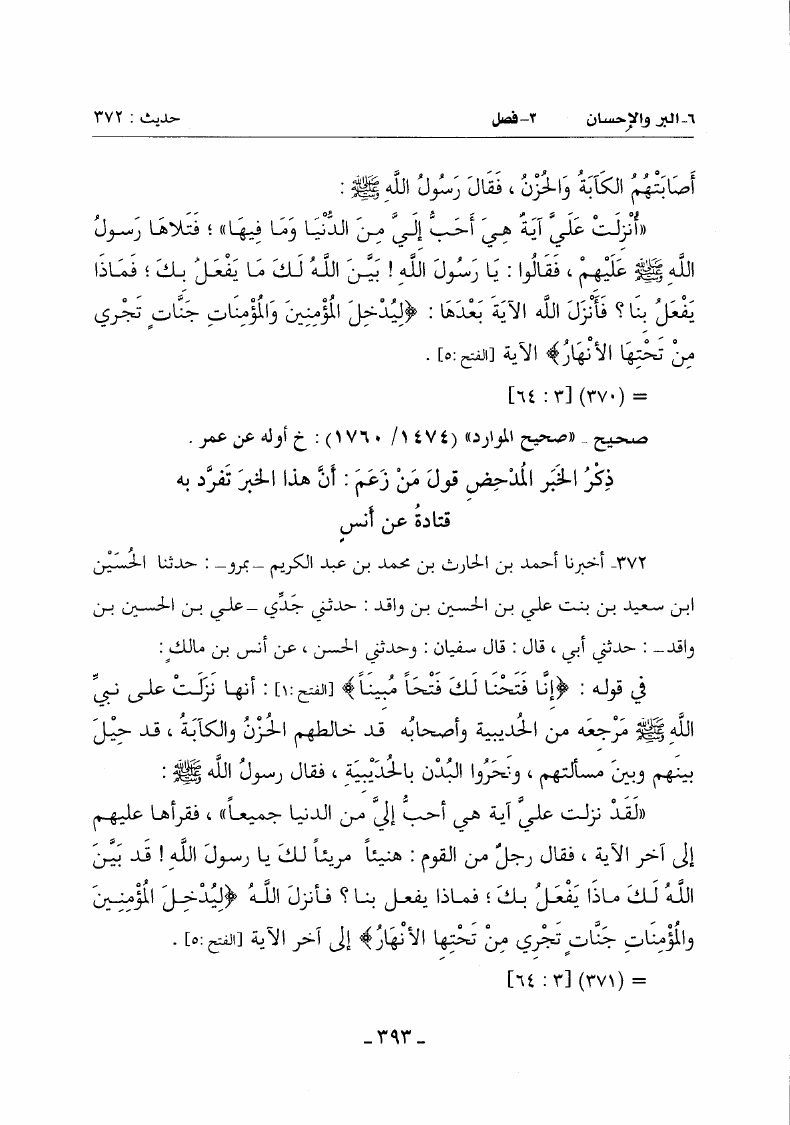 ٦ـ البر والإحسان ٢- فصل حديث : ٣٧٢
أَصَابَتْهُمُ الكَآبَةُ وَالحُزْنُ ، فَقَالَ رَسُولُ اللَّهِ ﷺ :
«أُنْزِلَتْ عَلَيَّ آيَةٌ هِيَ أَحَبُّ إِلَيَّ مِنَ الدُّنْيَا وَمَا فِيهَا» ؛ فَتَلَاهَا رَسولُ
اللَّهِ ﷺ عَلَيْهِمْ ، فَقَالُوا : يَا رَسُولَ اللَّهِ ! بَيَّنَ اللَّهُ لَكَ مَا يَفْعَلُ بِكَ ؛ فَمَاذَا
يَفْعَلُ بِنَا ؟ فَأَنْزَلَ اللَّه الآيَةَ بَعْدَهَا : ﴿لِيُدْخِلَ المُؤْمِنِينَ وَالمُؤْمِنَاتِ جَنَّاتٍ تَجْرِي
مِنْ تَحْتِهَا الأَنْهَارُ﴾ الآية [الفتح :٥] .
= (٣٧٠) [٣ : ٦٤]
صحيح ـ «صحيح الموارد» (١٤٧٤/ ١٧٦٠) : خ أوله عن عمر .
ذِكْرُ الخَبَرِ المُدْحِضِ قولَ مَنْ زَعَمَ : أَنَّ هذا الخبَرَ تَفرَّد به
قتادةُ عن أَنسٍ
٣٧٢ـ أخبرنا أحمد بن الحارث بن محمد بن عبد الكريم ـ بمرو ـ : حدثنا الحُسَيْن
ابن سعيد بن بنت علي بن الحسين بن واقد : حدثني جَدِّي ـ علي بن الحسين بن
واقد ـ : حدثني أبي ، قال : قال سفيان : وحدثني الحسن ، عن أنس بن مالكٍ :
في قوله : ﴿إِنَّا فَتَحْنَا لَكَ فَتْحَاً مُبِينَاً﴾ [الفتح :١] : أنها نزَلَتْ على نبيِّ
اللَّهِ ﷺ مَرْجِعَه من الحُديبية وأصحابُه قد خالطهم الحُزْنُ والكآبَةُ ، قد حِيْلَ
بينَهم وبينَ مسألتهم ، ونَحَرُوا البُدْن بالحُدَيْبِيَةِ ، فقال رسولُ اللَّهِ ﷺ :
«لَقَدْ نزلت عليَّ آية هي أحبُّ إليَّ من الدنيا جميعاً» ، فقرأها عليهم
إلى آخر الآية ، فقال رجلٌ من القوم : هنيئاً مريئاً لكَ يا رسولَ اللَّهِ ! قد بَيَّنَ
اللَّهُ لَكَ ماذا يَفْعَلُ بكَ ؛ فماذا يفعل بنا ؟ فأنزلَ اللَّهُ ﴿لِيُدْخِلَ المُؤْمِنِينَ
والمُؤْمِنَاتِ جَنَّاتٍ تَجْرِي مِنْ تَحْتِها الأَنْهَارُ﴾ إلى آخر الآية [الفتح :٥] .
= (٣٧١) [٣ : ٦٤]
ـ ٣٩٣ ـ